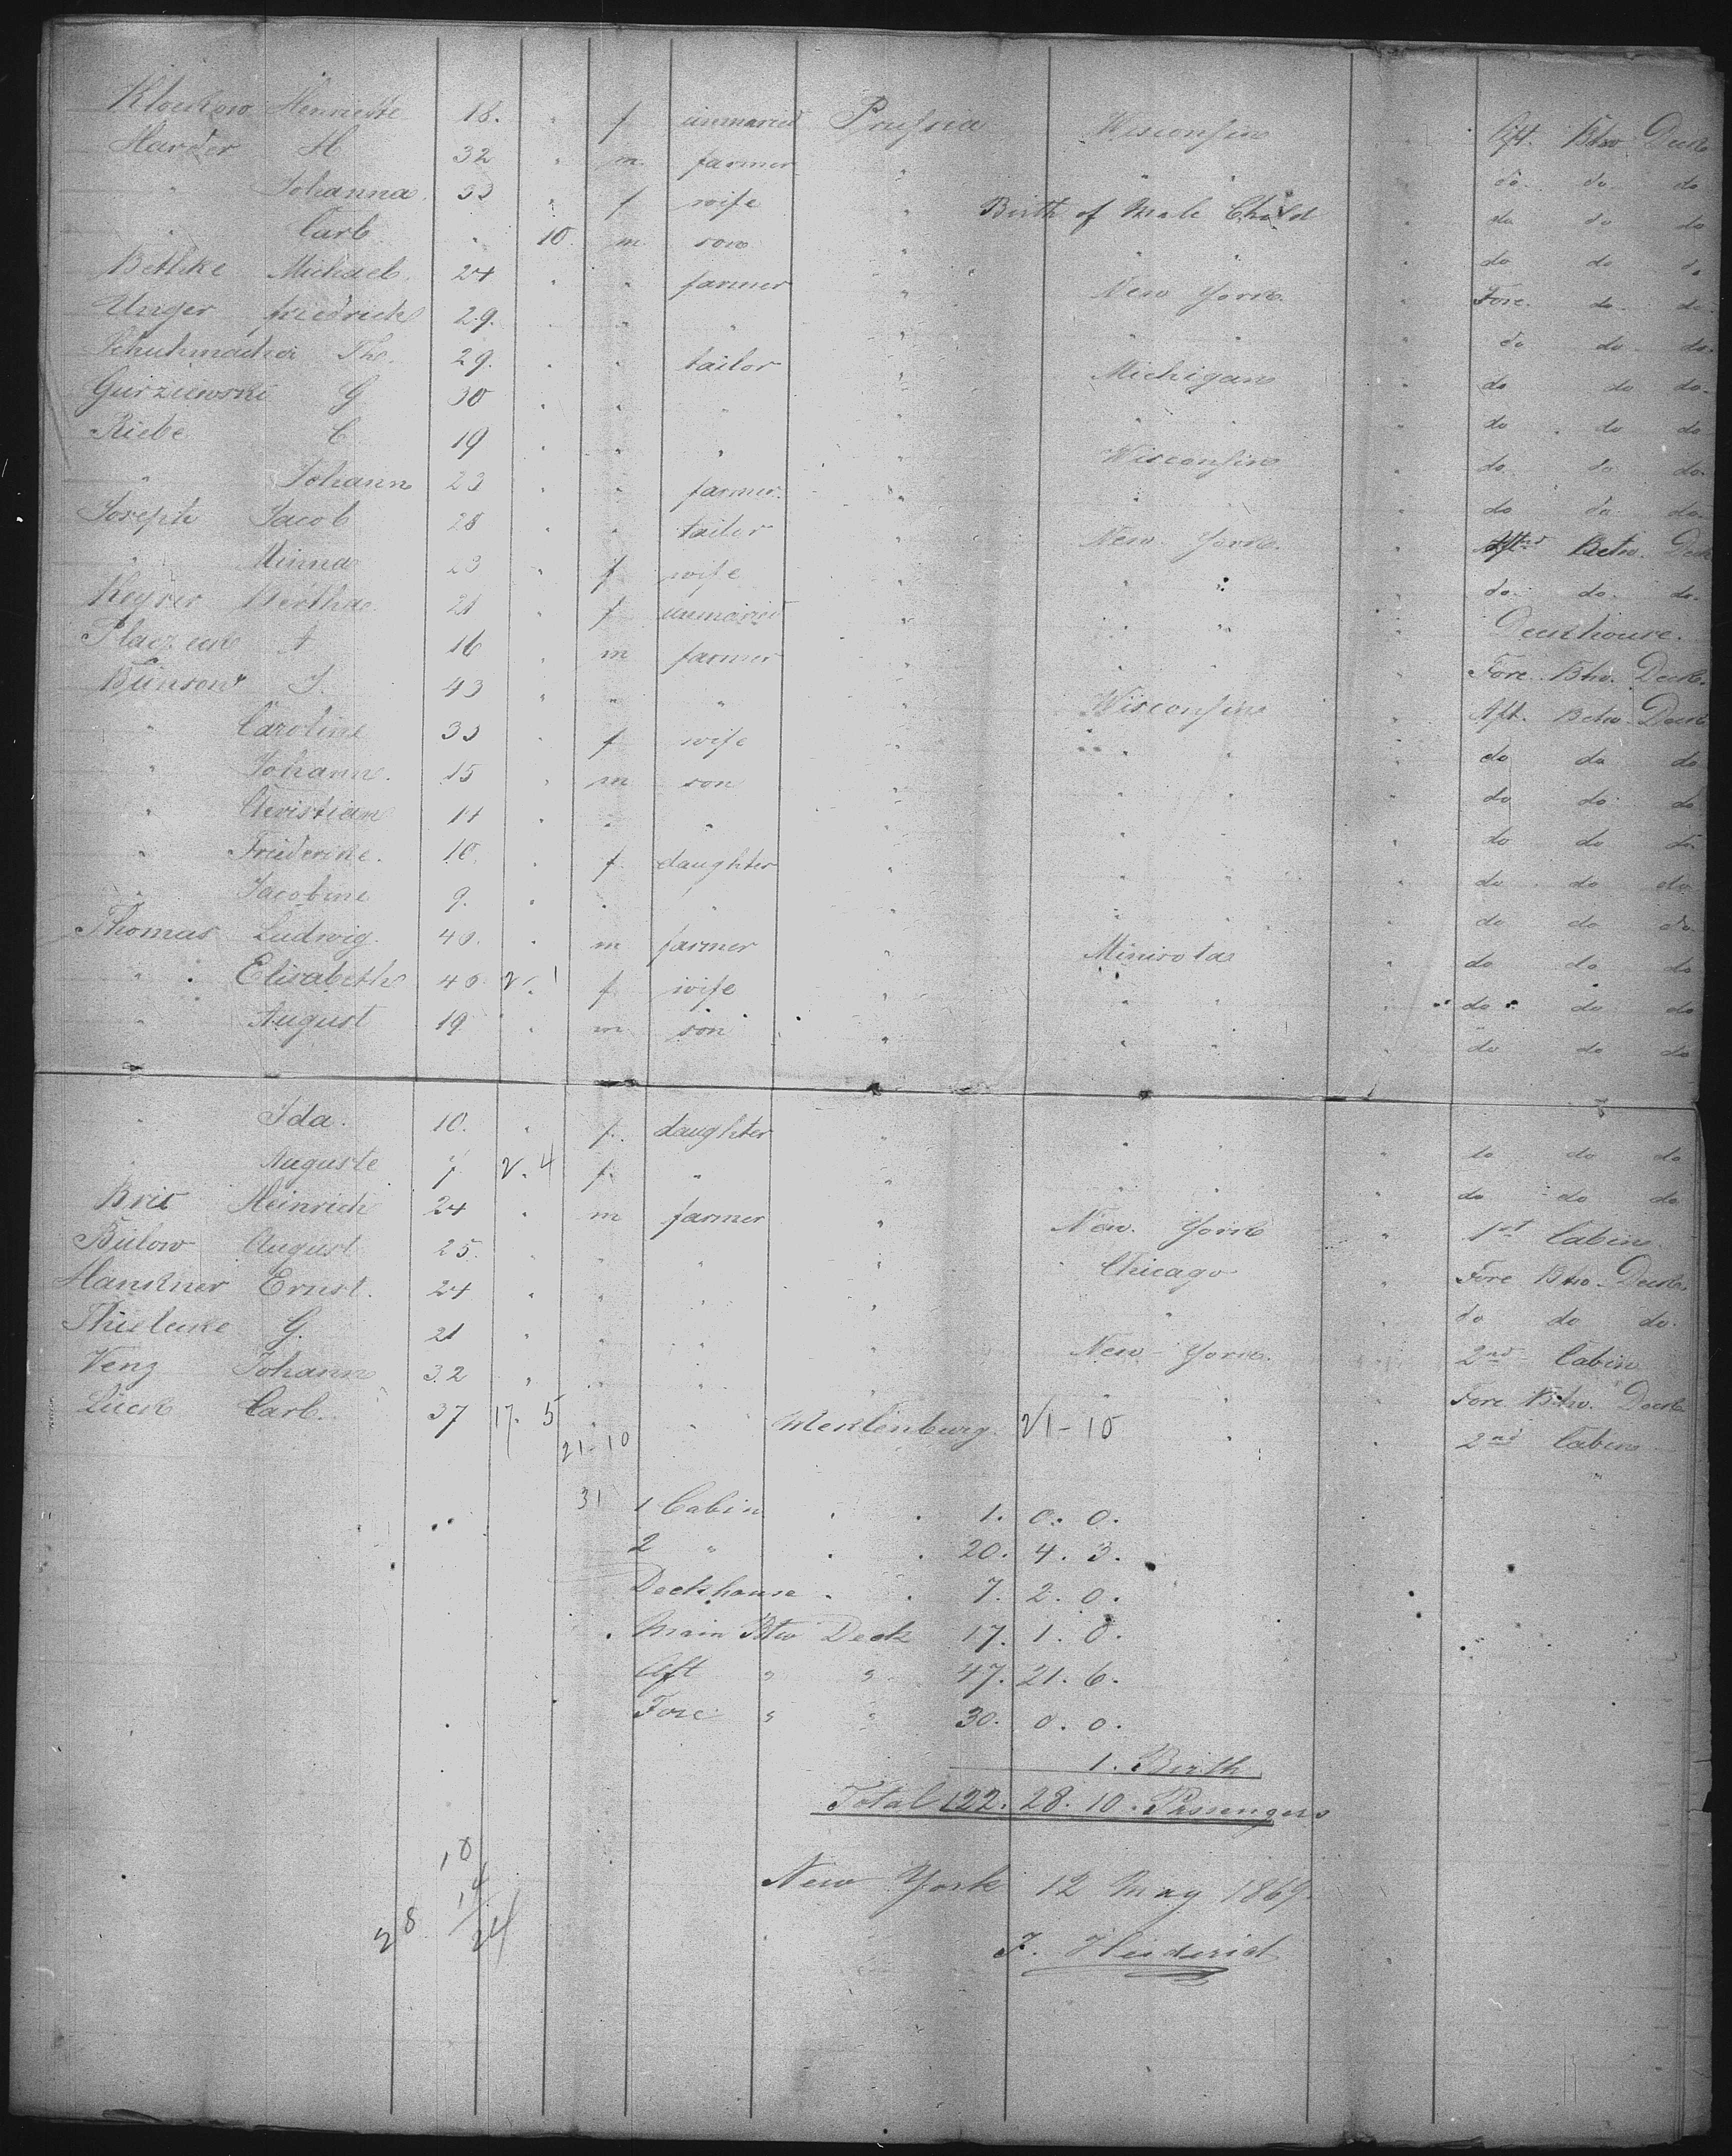 Klockow Henriette 18. " f unmaried Prussia Wisconsin Aft. Btw Deck
Harder H 32 " m. farmer " " " do do do
" Johanna. 33 " f wife " Birth of Male Child " do do do
" Carl " 10. m son " " " " do do do
Bethke Michael. 24 " " farmer " New York " Fore. do do
Unger friedrich 29. " " " " " " " do do do
Schuhmacher Th. 29. " " tailor " Michigan " do do do
Gurziewski G 30 " " " " " " " do do do
Riebe C 19 " " " " Wisconsin " do do do
" Johann 23 " " farmer " " " do do do
Joseph Jacob 28 " " tailor " New York. " Aft Betw. Deck
" Minna 23 " f wife " " " " do do do
Keyser Bertha 21 " f unmaried " " " " Deckhouse.
Placzeck A 16 " m farmer " " " " Fore Btw. Deck.
Bünson J. 43 " " " " Wisconsin " Aft. Betw. Deck
" Caroline 33 " f wife " " " " do do do
" Johann. 15 " m son " " " " do do do
" Christian 11 " " " " " " " do do do
" Friederike. 10. " f daughter " " " " do do do
" Jacobine 9. " " " " " " " do do do
Thomas Ludwig. 40. " m farmer " Minisota " do do do
" Elisabeth 40 2. 1 f wife " " " " do do do
" August 19 " m son " " " " do do do
" Ida. 10. " f. daughter " " " " do do do
" Auguste 7 2. 4 f. " " " " " do do do
Brit Heinrich 24 " m farmer " New York " 1st Cabin
Bülow August 25. " " " " Chicago " Fore Btw. Deck.
Hankner Ernst. 24 " " " " " " do do do.
Thieleke G. 21 " " " " New York. " 2nd Cabin
Venz Johann 32 " " " " " " Fore Btw. Deck
Lück Carl. 37 17. 5 " " Meklenburg. 21-10 " " 2nd Cabin
21-10
31 1 Cabin . . 1. 0. 0.
2 " . . 20. 4. 3.
Deckhouse . . 7. 2. 0.
Main Btw Deck 17. 1. 0.
Aft " " 47. 21. 6.
Fore " " 30. 0. 0.
1. Birth
Total 122. 28. 10. Passengers
10
14
28 24
New York 12 May 1869.